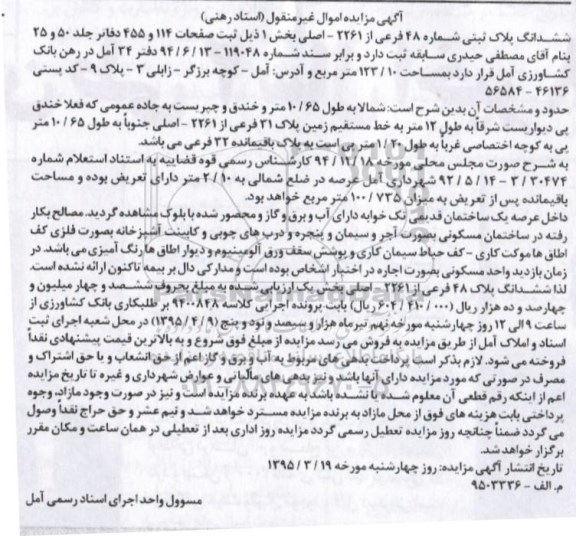 آگهی مزایده اموال غیرمنقول (اسناد رهنی)
ششدانگ پلاک ثبتی شماره ۴۸ فرعی از ۲۲۶۱ - اصلی بخش ۱ ذیل ثبت صفحات ۱۱۴ و ۴۵۵ دفاتر جلد ۵۰ و ۲۵
بنام آقای مصطفی حیدری سابقه ثبت دارد و برابر سند شماره ۱۱۹۰۴۸ - ۱۳ / ۶ / ۹۴ دفتر ۳۴ آمل در رهن بانک
کشاورزی آمل قرار دارد بمساحت ۱۰ / ۱۲۳ متر مربع و آدرس: آمل - کوچه برزگر - زابلی ۳ - پلاک ۹ - کد پستی
۴۶۱۳۶ - ۵۶۵۸۴
حدود و مشخصات آن بدین شرح است: شمالا به طول ۶۵ / ۱۰ متر و خندق و چپر بست به جاده عمومی که فعلا خندق
پی دیواریست شرقاً به طول ۱۲ متر به خط مستقیم زمین پلاک ۳۱ فرعی از ۲۲۶۱ - اصلی جنوباً به طول ۶۵ / ۱۰ متر
پی به کوچه اختصاصی غرباً به طول ۱۰ / ۱۱ متر پی است به پلاک باقیمانده ۳۲ فرعی می باشد.
به شرح صورت مجلس محلی مورخه ۱۸ / ۱۲ / ۹۴ کارشناس رسمی قوه قضاییه به استناد استعلام شماره
۳۰۴۷۴ / ۳ - ۱۴ / ۵ / ۹۲ شهرداری آمل عرصه در ضلع شمالی به ۱۰ / ۲ متر دارای تعریض بوده و مساحت
باقیمانده پس از تعریض به میزان ۷۳۵ / ۱۰۰ متر مربع خواهد بود.
داخل عرصه یک ساختمان قدیمی تک خوابه دارای آب و برق و گاز و محصور شده با بلوک مشاهده گردید. مصالح بکار
رفته در ساختمان مسکونی بصورت آجر و سیمان و پنجره و درب های چوبی و کابینت آشپزخانه بصورت فلزی کف
اطاق ها موکت کاری - کف حیاط سیمان کاری و پوشش سقف ورق آلومینیوم و دیوار اطاق ها رنگ آمیزی می باشد. در
زمان بازدید واحد مسکونی بصورت اجاره در اختیار اشخاص بوده است و مدارکی دال بر بیمه تاکنون ارائه نشده است.
لذا ششدانگ پلاک ۴۸ فرعی از ۲۲۶۱ - اصلی بخش یک ارزیابی شده به مبلغ بحروف ششصد و چهار میلیون و
چهارصد و ده هزار ریال (۰۰۰ / ۴۱۰ / ۶۰۴ ریال) بابت پرونده اجرایی کلاسه ۹۴۰۰۸۴۸ بر طلبکاری بانک کشاورزی از
ساعت ۹ الی ۱۲ روز چهارشنبه مورخه نهم تیرماه هزار و سیصد و نود و پنج (۹ / ۴ / ۱۳۹۵) در محل شعبه اجرای ثبت
اسناد و املاک آمل از طریق مزایده به فروش می رسد مزایده از مبلغ فوق شروع و به بالاترین قیمت پیشنهادی نقداً
فروخته می شود. لازم بذکر است پرداخت بدهی های مربوط به آب و برق و گاز اعم از حق انشعاب و یا حق اشتراک و
مصرف در صورتی که مورد مزایده دارای آنها باشد و نیز بدهی های مالیاتی و عوارض شهرداری و غیره تا تاریخ مزایده
اعم از اینکه رقم قطعی آن معلوم شده یا نشده باشد به عهده برنده مزایده است و نیز در صورت وجود مازاد، وجوه
پرداختی بابت هزینه های فوق از محل مازاد به برنده مزایده مسترد خواهد شد و نیم عشر و حق حراج نقداً وصول
می گردد ضمناً چنانچه روز مزایده تعطیل رسمی گردد مزایده روز اداری بعد از تعطیلی در همان ساعت و مکان مقرر
برگزار خواهد شد.
تاریخ انتشار آگهی مزایده: روز چهارشنبه مورخه ۱۹ / ۳ / ۱۳۹۵
م. الف - ۹۵۰۳۳۳۶
مسوول واحد اجرای اسناد رسمی آمل